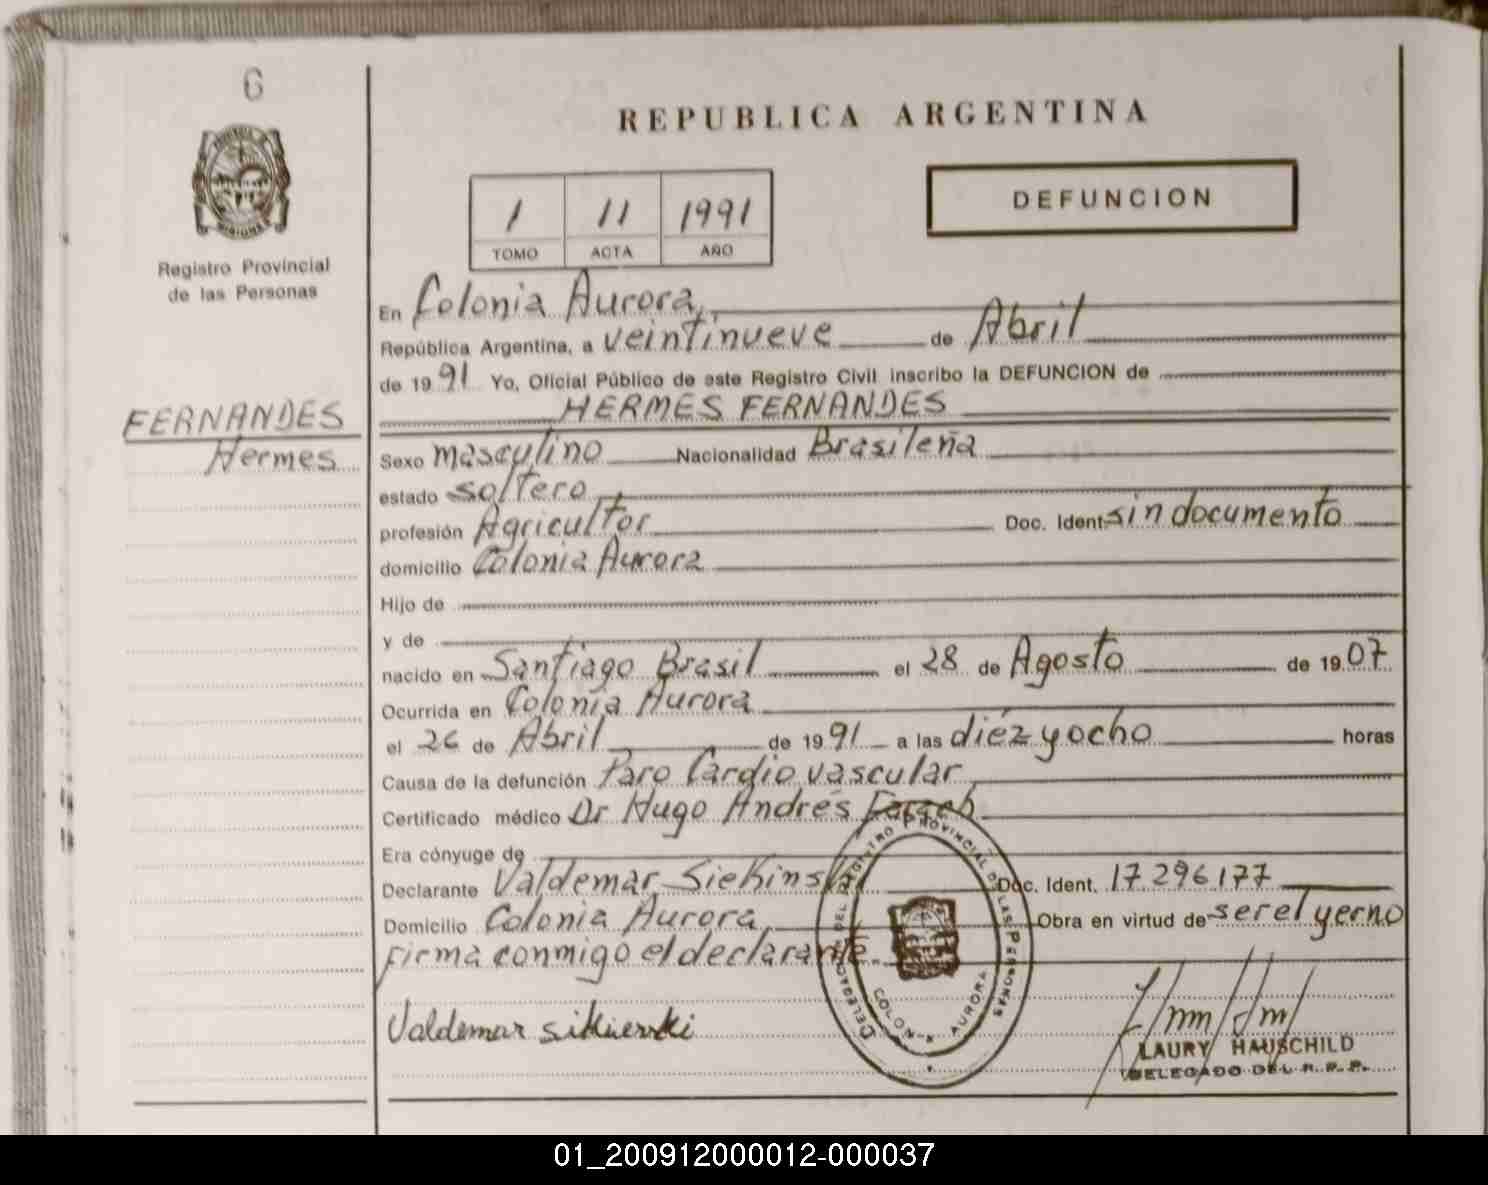 6
REPUBLICA ARGENTINA
DEFUNCION
1 11 1991
TOMO ACTA AÑO
Registro Provincial
de las Personas
En Colonia Aurora,
República Argentina, a veintinueve de Abril
de 1991 Yo, Oficial Público de este Registro Civil inscribo la DEFUNCION de
HERMES FERNANDES
FERNANDES
Hermes
Sexo masculino Nacionalidad Brasileña
estado soltero
profesión Agricultor Doc. Ident. sin documento
domicilio Colonia Aurora
Hijo de
y de
nacido en Santiago Brasil el 28 de Agosto de 1907
Ocurrida en Colonia Aurora
el 26 de Abril de 1991 a las diéz y ocho horas
Causa de la defunción Paro Cardio vascular
Certificado médico Dr Hugo Andrés
Era cónyuge de
Declarante Valdemar Siekinski Doc. Ident. 17296177
Domicilio Colonia Aurora, Obra en virtud de ser el yerno
Firma conmigo el declarante.
DELEGACION DEL REGISTRO PROVINCIAL DE LAS PERSONAS
COLONIA AURORA
Valdemar
LAURY HAUSCHILD
DELEGADO DEL R. P. P.
01_200912000012-000037